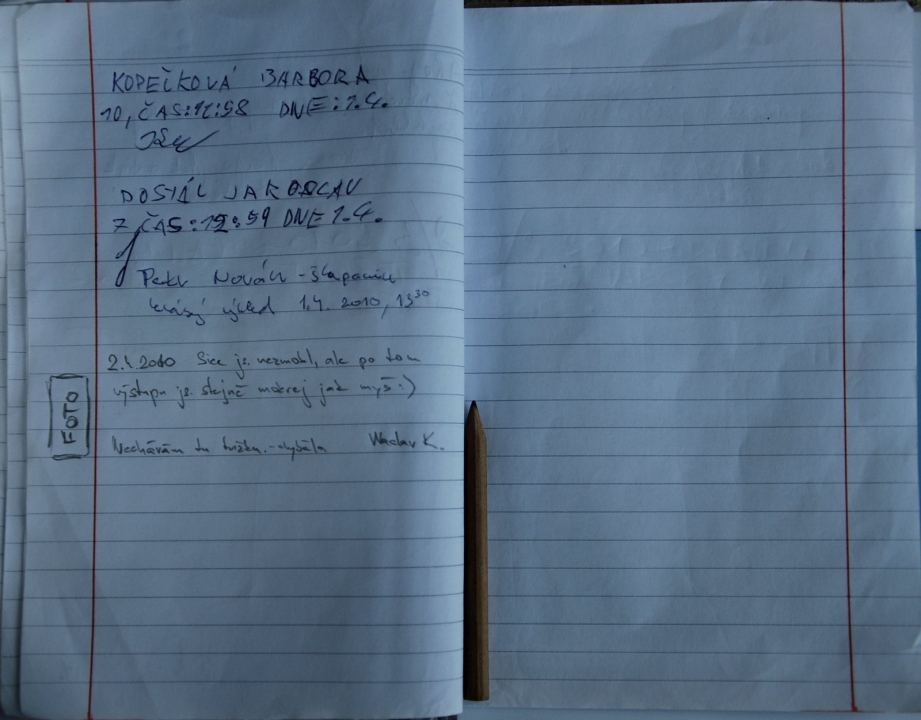 KOPEČKOVÁ BARBORA
10, ČAS: DNE: 1.4.
DOSTÁL JAROSLAV
7, ČAS: 12:59 DNE 1.4.
Petr Novák - Šlapanice
krásný výhled 1.4. 2010, 13³⁰
Sice js. nezmokl, ale po tom
výstupu js. stejně mokrej jak myš :)
FOTO
Nechávám tu tužku - chyběla Waclav K.